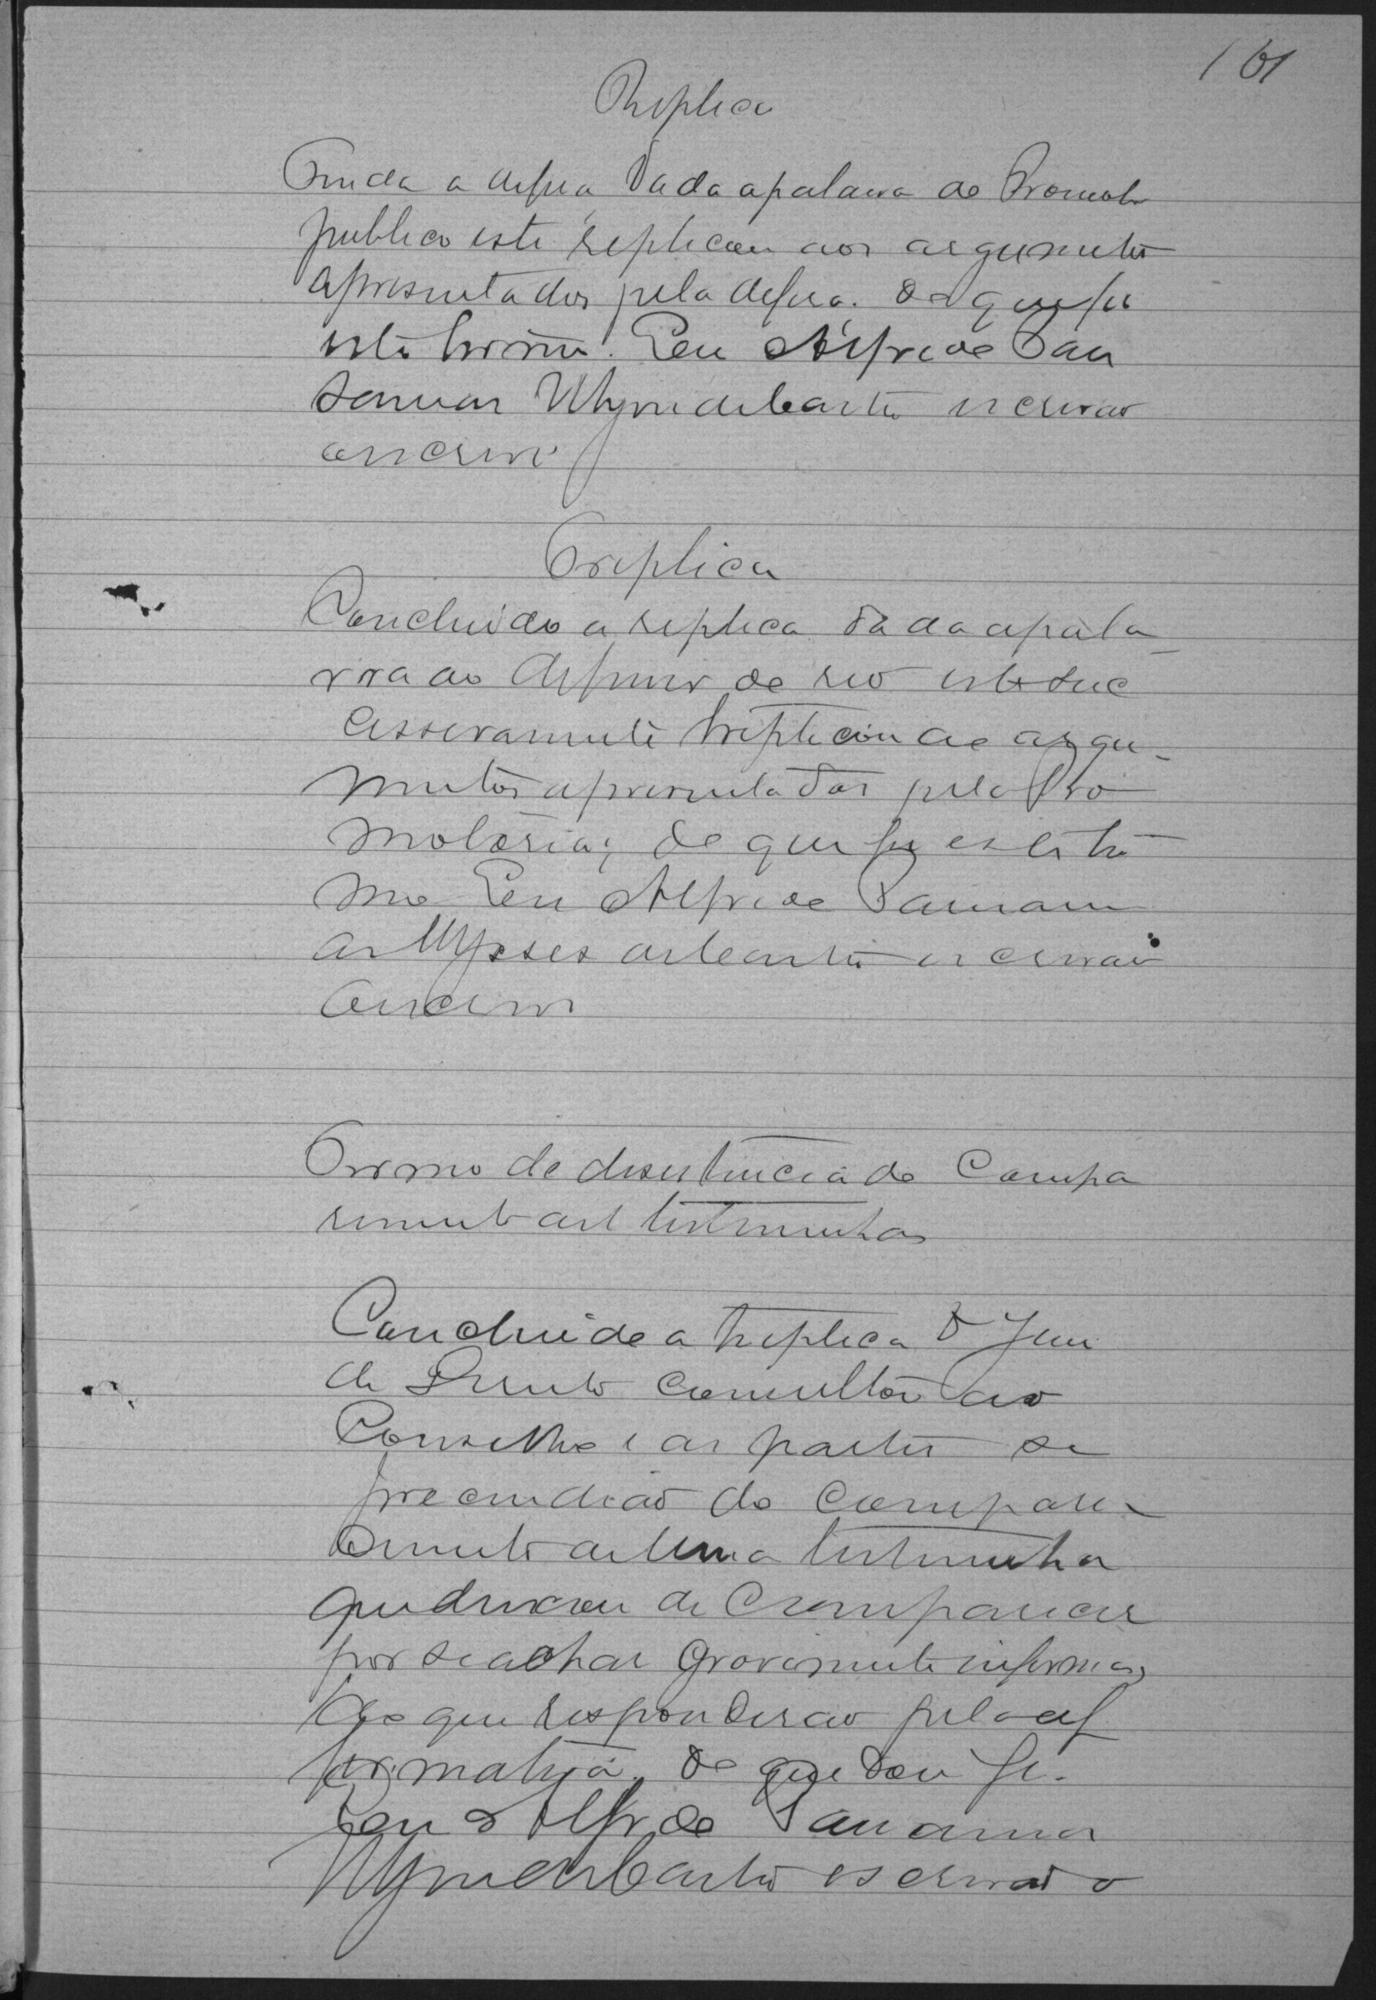 101
Replica
Finda a defesa dada a palavra ao Promotor
publico este replicou aos argumentos
apresentados pela defesa. Do que fiz
este termo. Eu Alfredo
Ulysses de Castro escrivão
o escrevi
Treplica
Concluido a replica dada a pala
vra ao defensor do reo este suc
cessivamente treplicou ao argu-
mentos apresentados pela Pro
motoria; do que fiz este ter
mo Eu Alfredo
Ulysses de Castro escrivão
o escrevi
Termo de desistencia do Compa
rimento das testemunhas
Concluido a treplica o Juiz
de Direito consultou ao
Conselho e as partes se
precindião do compare
cimento de uma testemunha
que deixou de comparecer
por se achar gravemente inferma,
ao que responderão pela af
firmativa. do que dou fé.
Eu Alfredo
Ulysses de Castro escrivão o